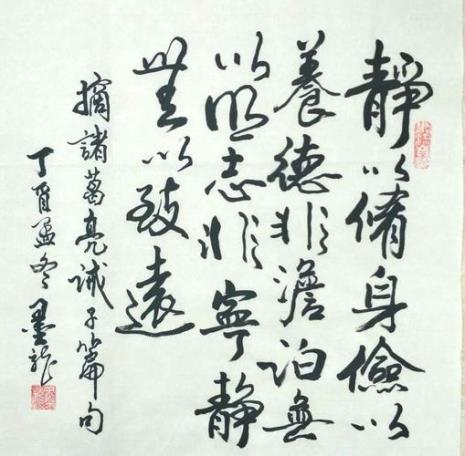 靜以脩身儉以
養德非澹泊無
以明志非寧靜
無以致遠
摘諸葛亮誡子篇句
丁酉孟冬墨